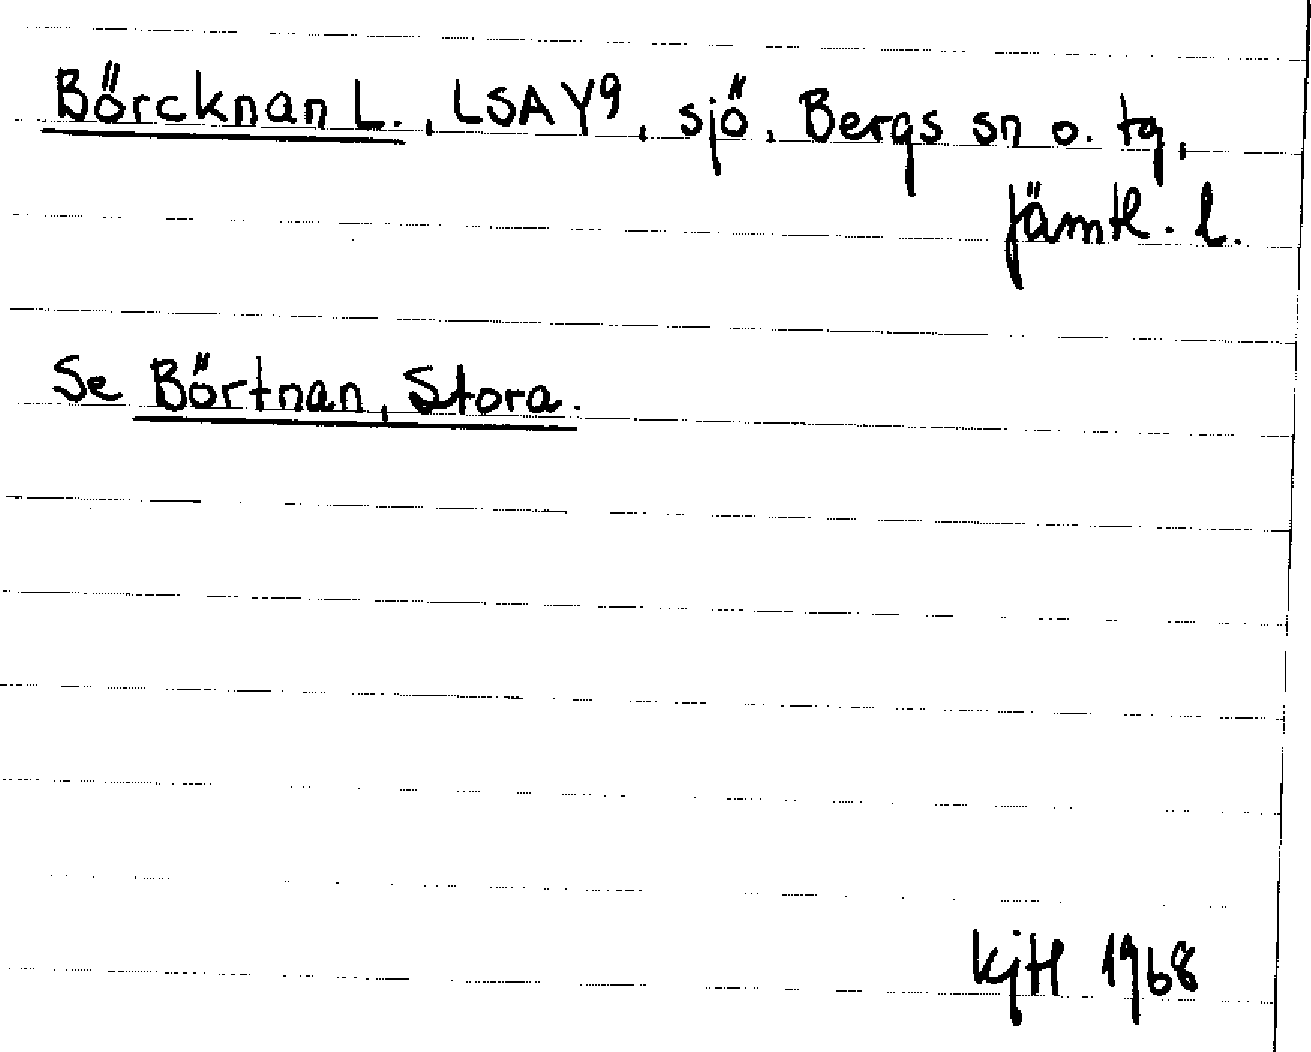 Börcknan L., LSA Y9, sjö, Bergs sn o. tg,
Jämtl. l.
Se Börtnan, Stora.
KjH 1968